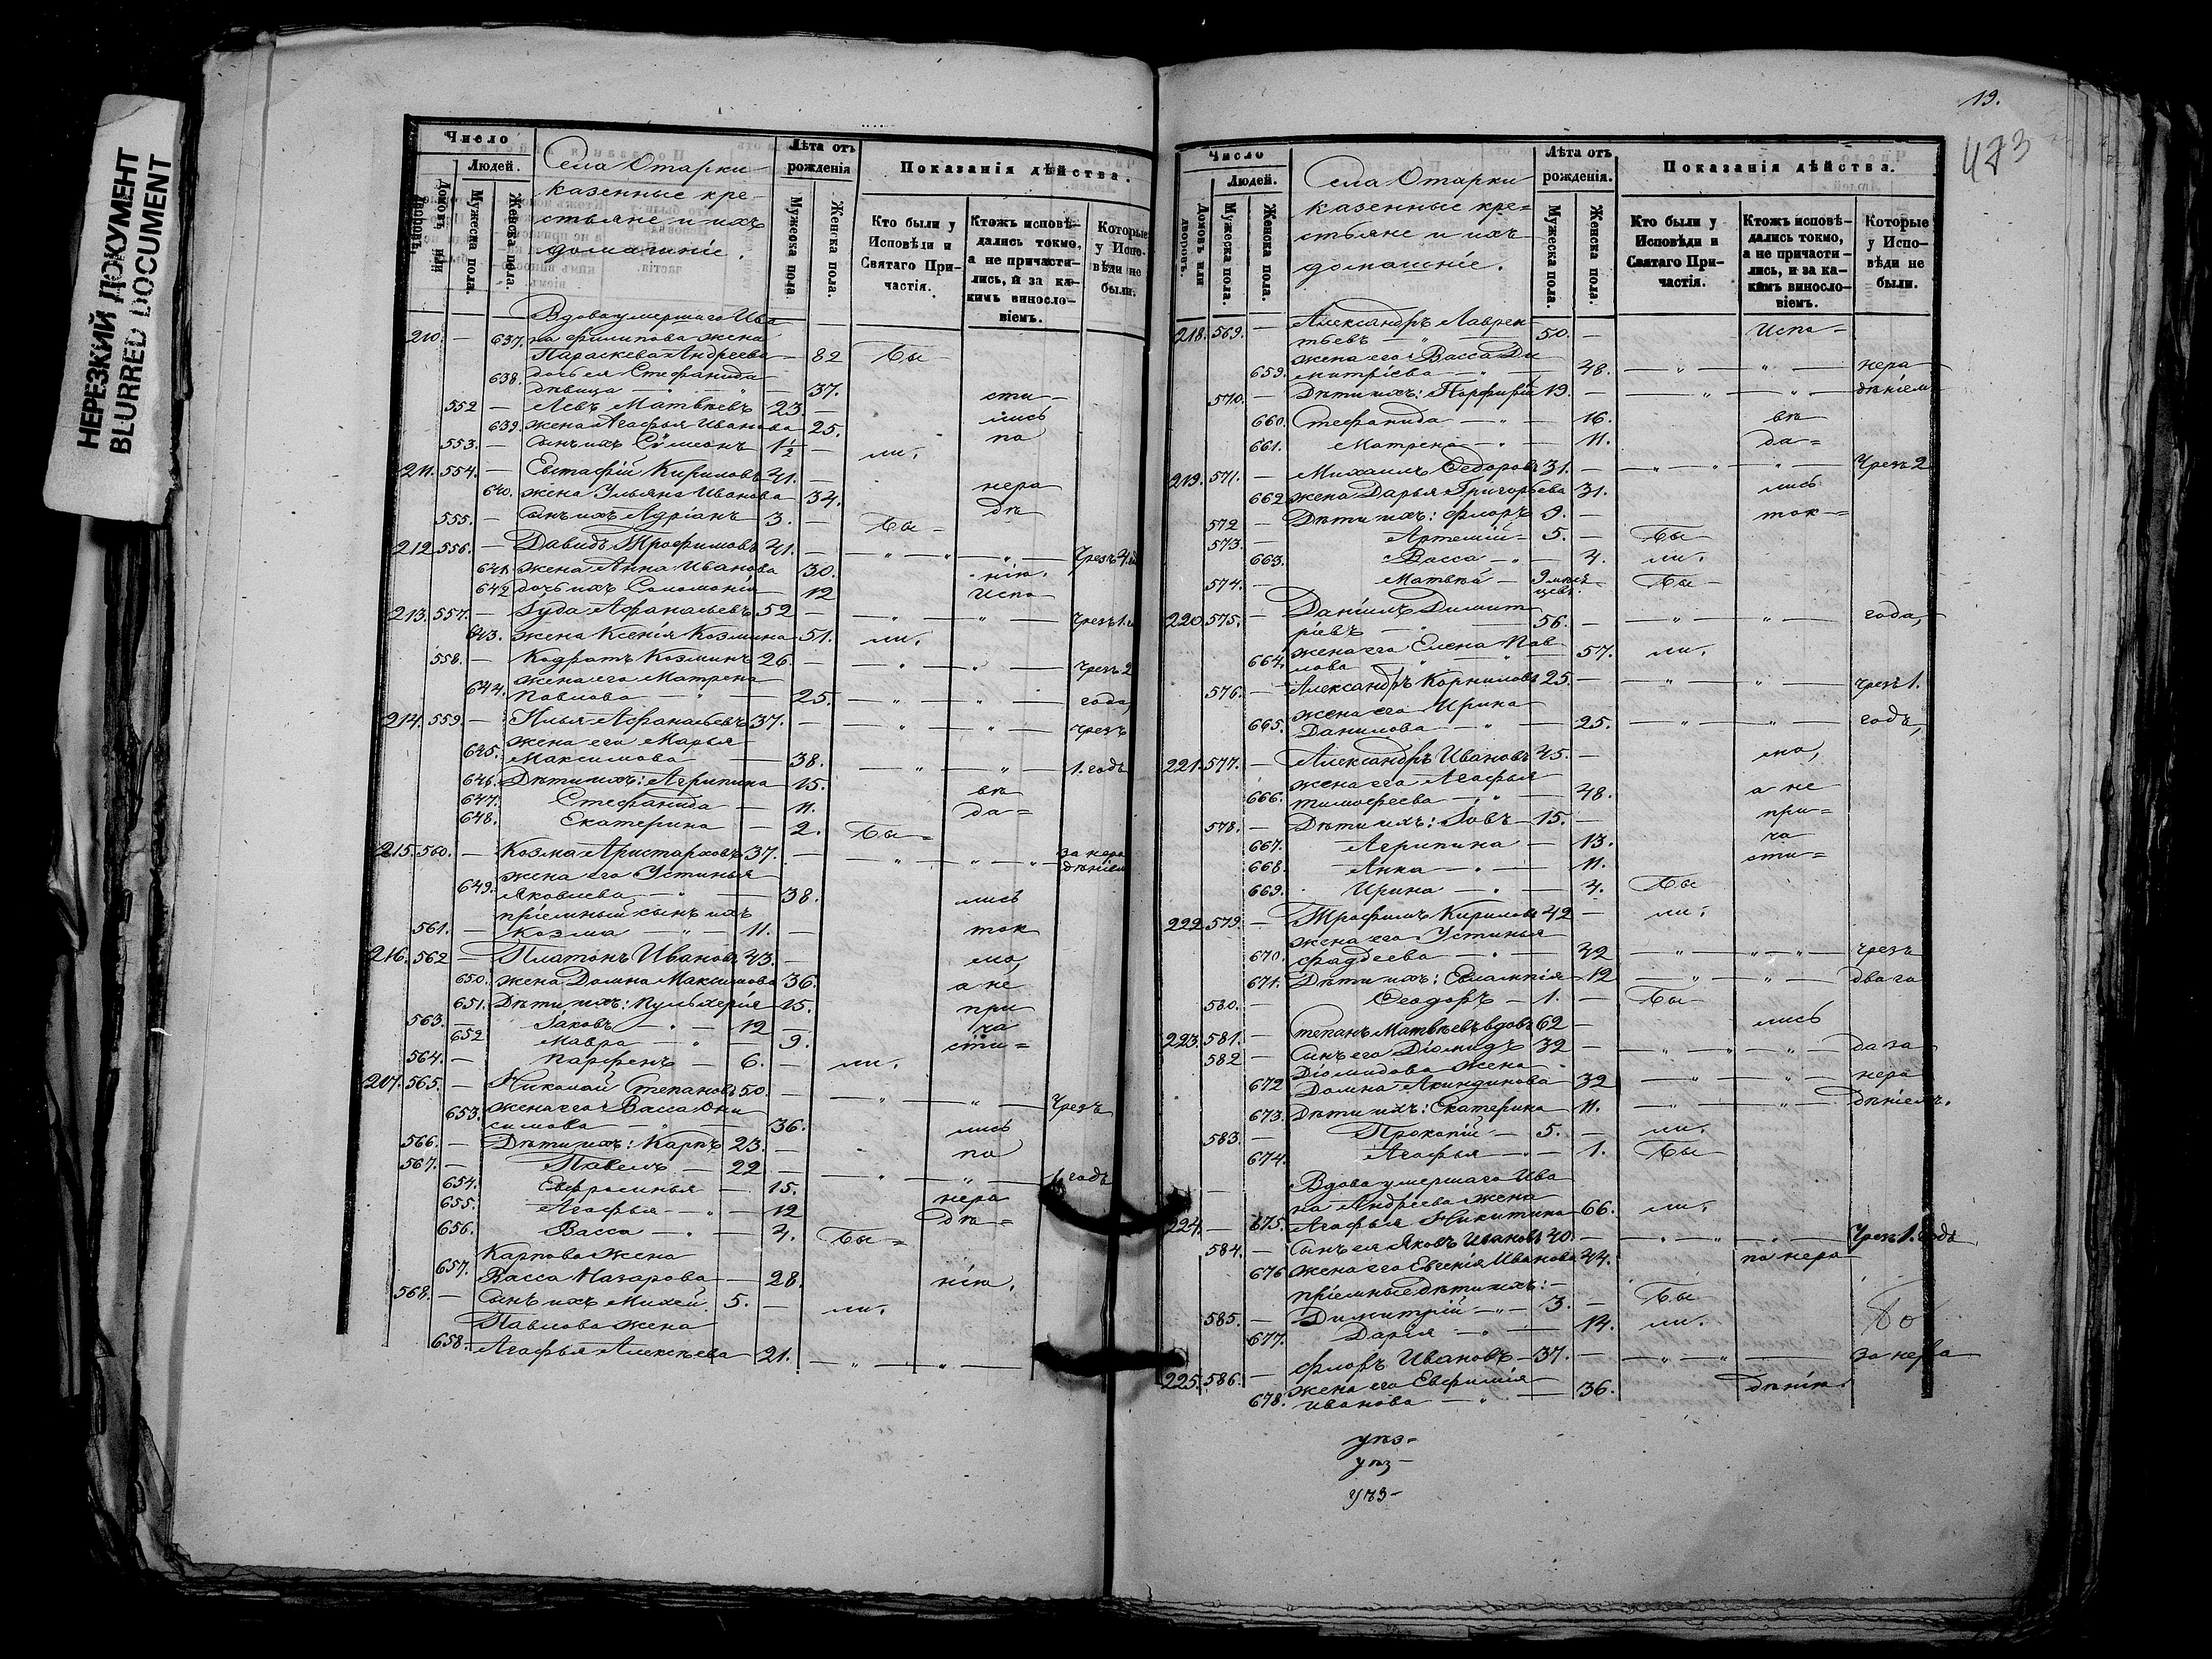 НЕРЕЗКИЙ ДОКУМЕНТ
BLURRED DOCUMENT
Число
Людей.
Домовъ или дворовъ.
Мужеска пола.
Женска пола.
Села Отарки
казенные кре-
стьяне и ихъ
домашніе.
Лѣта отъ рожденія
Мужеска пола.
Женска пола.
Показанія дѣйства.
Кто были у Исповѣди и Святаго Причастія.
Ктожъ исповѣдались токмо, а не причастились, и за какимъ винословіемъ.
Которые у Исповѣди не были.
Вдова умершаго Ива
210. — 637. на Филипова жена
Параскева Андреева — 82 бы
638. дочь ея Стефанида
дѣвица — 37. сти-
552 — Левъ Матвѣевъ 23. — лись
639. жена Агафья Иванова 25. по
553. — сынъ ихъ Сѵмеонъ 1½ — ли.
211. 554. — Евстафій Кириловъ 41. —
640. жена Ульяна Иванова 34. нера
555. — сынъ ихъ Адріанъ 3. — бы- дѣ
212. 556. — Давидъ Трофимовъ 41. — „ „ чрезъ
641. жена Анна Иванова 30. нію.
642. дочь ихъ Соломонія 12 испо
213. 557. — Іуда Афанасьевъ 52 — „ „ чрезъ 1.
643. жена Ксенія Козмина 51. ли.
558. — Кодратъ Козминъ 26. — „ „ чрезъ 2
644. жена его Матрена
Павлова — 25. — „ „ года,
214. 559. — Илья Афанасьевъ 37. — „ „ чрезъ
645. жена его Марья
Максимова — 38. — „ „ 1. годъ
646. Дѣти ихъ: Агрипина 15. вѣ
647. Стефанида — 11. да=
648. Екатерина — 2. бы=
215. 560. — Козма Аристарховъ 37. — „ „ за нера
дѣніем
649. жена его Устинья
Яковлева — 38. лись
пріемный сынъ ихъ
561. — Козма — 11. — ток
216. 562 — Платонъ Ивановъ 43. — мо,
650. жена Домна Максимова 36. а не
651. Дѣти ихъ: Пульхерія 15. при
563. — Іаковъ — 12 — ча
652 Мавра — 9. сти=
564. — Парфенъ — 6. — ли.
217. 565. — Николай Степановъ 50. — „ „ чрезъ
653. жена его Васса Они
симова — 36. лись
566. — Дѣти ихъ: Карпъ 23. — по
567. — Павелъ — 22 — „ „ 1. годъ
654. Евфросинья — 15. нера
655. Агафья — 12 дѣ=
656. Васса — 4. бы=
Карпова жена
657. Васса Назарова — 28. нію.
568. — Сынъ ихъ Михей 5. — ли.
Павлова жена
658. Агафья Алексѣева 21. — „ „
19.
473
Число
Людей.
Домовъ или дворовъ.
Мужеска пола.
Женска пола.
Села Отарки
казенные кре=
стьяне и ихъ
домашніе.
Лѣта отъ рожденія.
Мужеска пола.
Женска пола.
Показанія дѣйства.
Кто были у Исповѣди и Святаго Причастія.
Ктожъ исповѣдались токмо, а не причастились, и за какимъ винословіемъ.
Которые у Исповѣди не были.
218. 569. — Александръ Лаврен
тьевъ — 50. — Испо-
жена его Васса Ди
659. митріева — 48. — „ „ нера
570. — Дѣти ихъ: Порфирій 19. — „ „ дѣніемъ
660. Стефанида — 16. вѣ
661. Матрена — 11. да=
219. 571. — Михаилъ Федоровъ 31. — „ „ чрез 2
662 жена Дарья Григорьева 31. лись
572 — Дѣти ихъ: Флоръ 9. — ток=
573. — Артемій — 5. — бы
663. Васса — 4. ли.
574. — Матвѣй — 9 мѣся
цевъ. бы-
220. 575. — Даніилъ Димит
ріевъ — 56. — „ „ года,
664. жена его Елена Пав
лова — 57. ли.
576. — Александръ Корниловъ 25. — „ „ чрезъ 1.
665. жена его Ирина
Данилова — 25. — „ „ годъ,
221. 577. — Александръ Ивановъ 45. — мо,
666. жена его Агафья
Тимофеева — 48. а не
578. — Дѣти ихъ: Іовъ — 15. — при=
667. Агрипина — 13. ча
668. Анна — 11. сти=
669. Ирина — 4. бы
222 579. — Трофимъ Кириловъ 42 — ли.
жена его Устинья
670. Фаддеева — 42 — „ „ чрезъ
671. Дѣти ихъ: Евлампія 12 — „ „ два го
580. — Ѳеодоръ — 1. — бы-
223. 581. — Степанъ Матвѣевъ вдовъ 62 — лись
582 — Сынъ его Діомидъ 32 — „ „ да за
Діомидова жена
672 Домна Акиндинова 32 — „ „ нера
673. Дѣти ихъ: Екатерина — 11. — „ „ дѣніемъ.
583. — Прокопій — 5. — ли.
674. Агафья — 1. бы
Вдова умершаго Ива
на Андреева жена
224. — 675. Агафья Никитина 66. ли.
584. — Сынъ ея Яковъ Ивановъ 40. — „ „ чрез 1. годъ
676 жена его Евгенія Иванова 44. по нера
пріемные дѣти ихъ: —
585. — Димитрій — 3. — бы
677. Дарія — 14. ли.
225. 586. — Флоръ Ивановъ — 37. — „ „ за нера
678. жена его Евфимія
Иванова — 36. дѣнію.